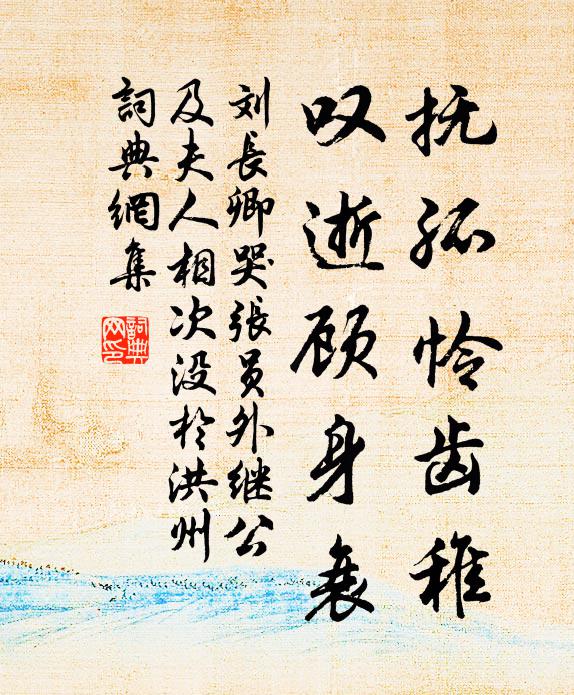 抚孤怜齿稚
叹逝顾身衰
刘長卿哭張员外继公
及夫人相次没於洪州
詞典網集
詞典網印